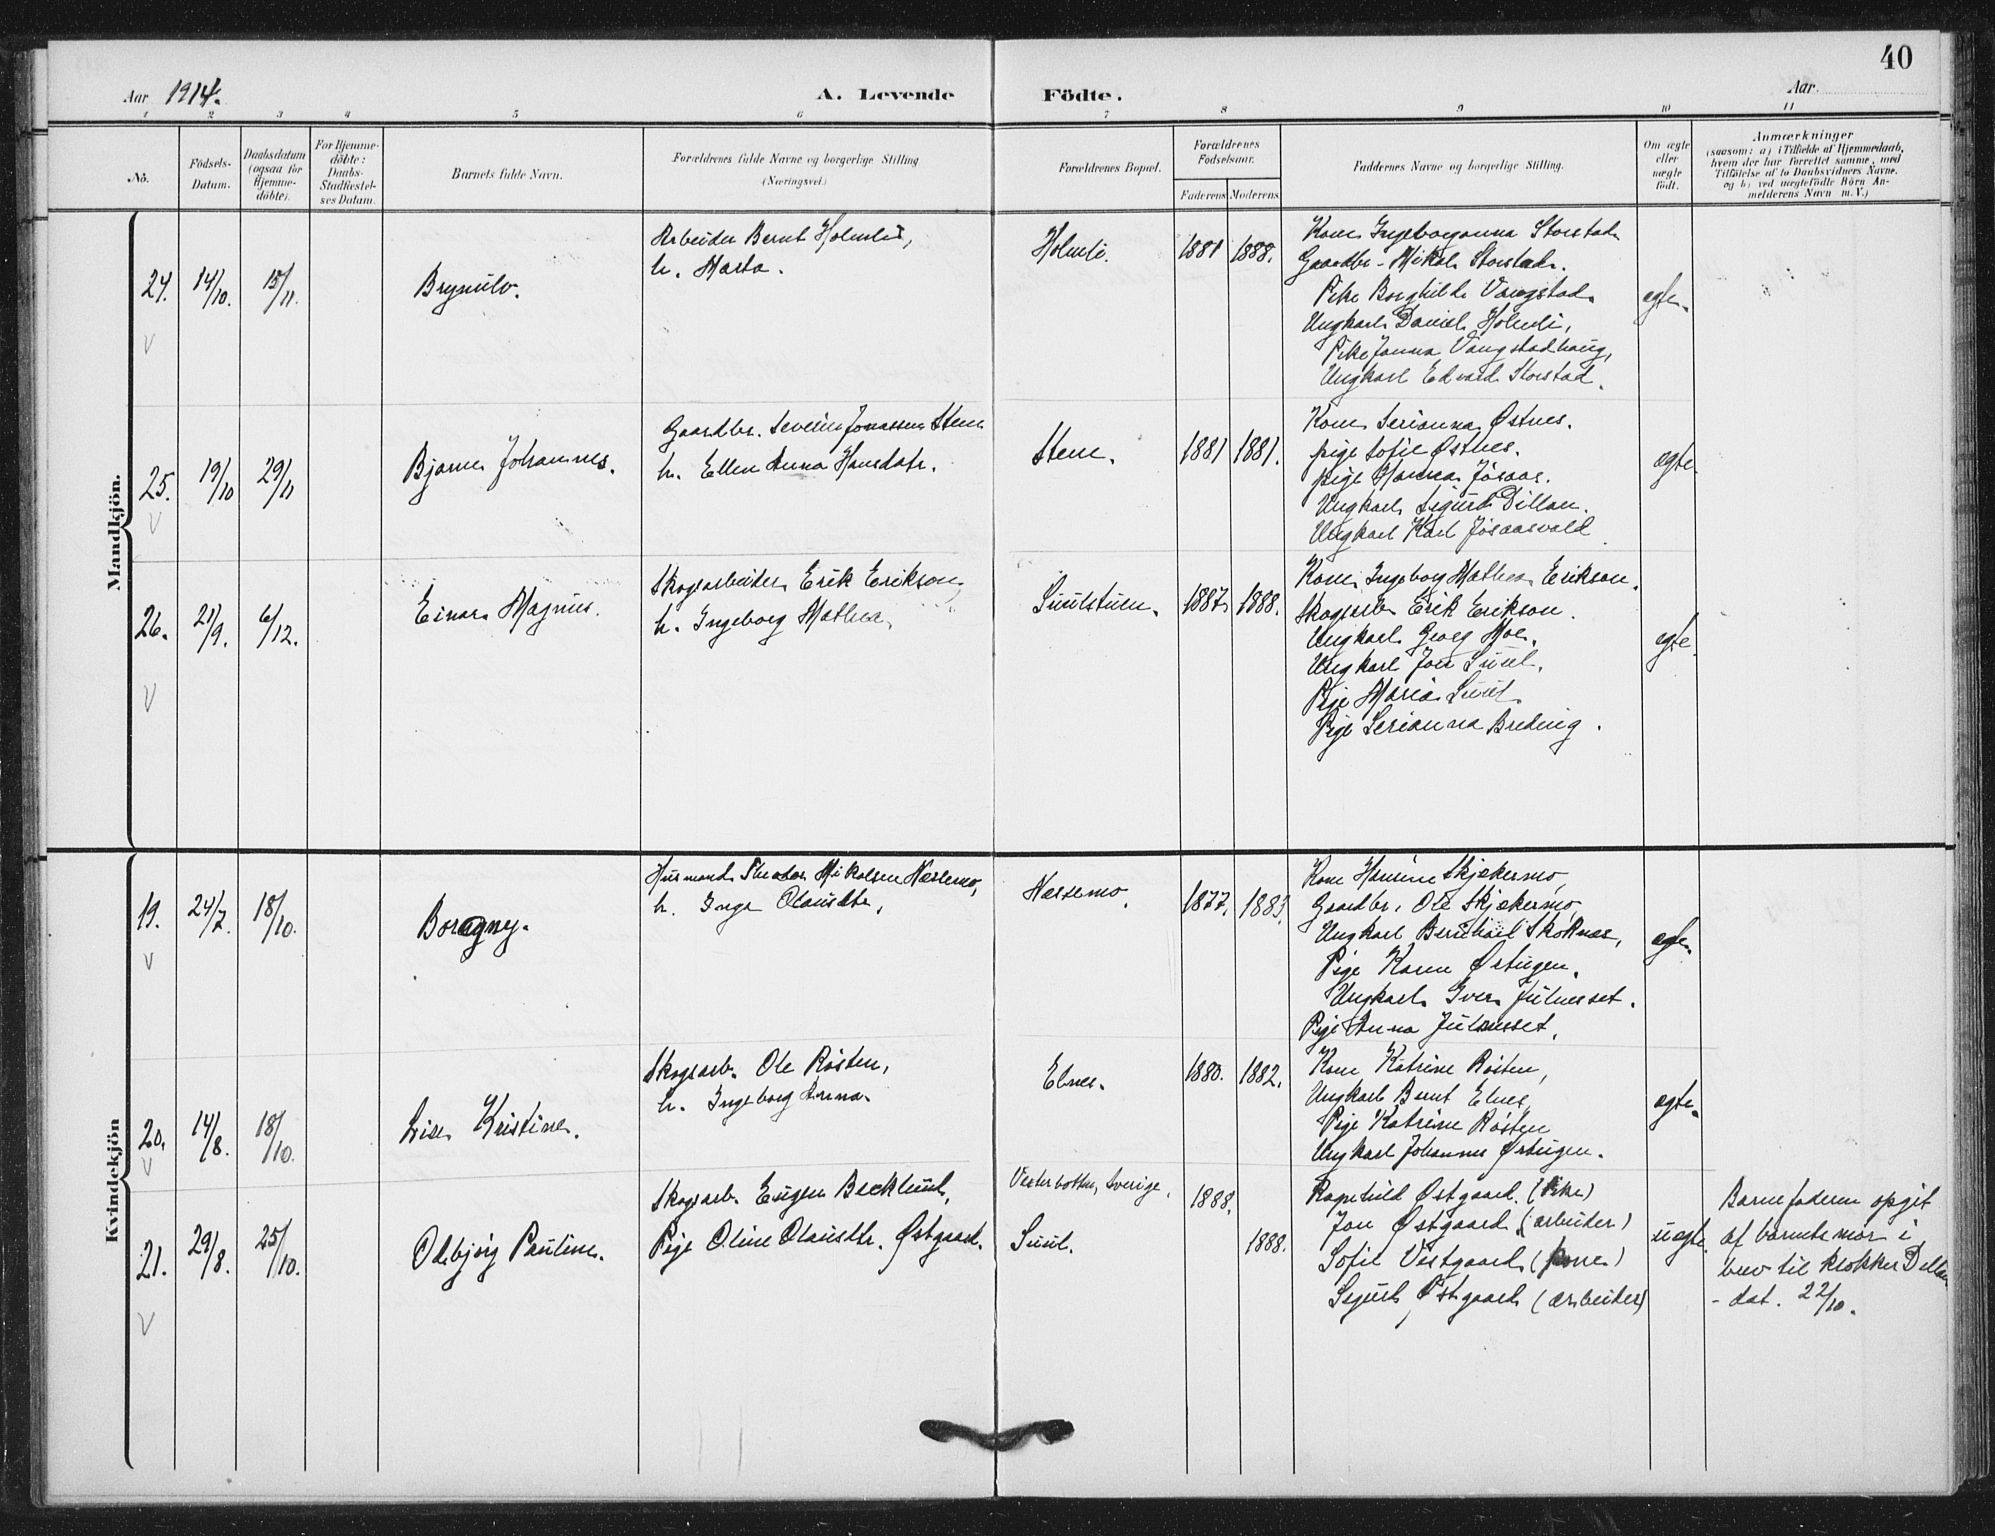 40
Aar 1914.
A. Levende Födte.
Aar
1 2 3 4 5 6 7 8 9 10 11
No.
Födsels-
Datum.
Daabsdatum
(ogsaa for
Hjemme-
döbte).
For Hjemme-
döbte:
Daabs-
Stadfæstel-
ses Datum.
Barnets fulde Navn.
Forældrenes fulde Navne og borgerlige Stilling
(Næringsvei.)
Forældrenes Bopæl.
Forældrenes
Fødselsaar.
Faderens Moderens
Faddernes Navne og borgerlige Stilling.
Om ægte
eller
uægte
født.
Anmærkninger
(saasom: a) i Tilfælde af Hjemmedaab,
hvem der har forrettet samme, med
Tilföielse af to Daabsvidners Navne.
og b) ved uægtefödte Börn An-
melderens Navn m. V.)
Mandkjön.
24.
14/10.
15/11.
Brynulv.
Arbeider Bernt Holmli,
h. Marta.
Holmli.
1881 1888.
Kone Ingeborganna Storstad
Gaardbr. Mikal Storstad.
Pike Borghild Vangstad.
Ungkarl Daniel Holmli,
Pike Janna Vangstadhaug,
Ungkarl Edvard Storstad.
egte.
25.
19/10
29/11
Bjarne Johannes.
Gaardbr. Severin Jonassen Stene
h. Ellen Anna Hansdatr.
Stene.
1881 1881.
Kone Serianna Østnes.
pige Sofie Østnes.
pige Hanna Jøsaas.
Ungkarl Sigurd Dillan.
Ungkarl Karl Jøsaasvald
ægte
26.
21/9.
6/12.
Einar Magnus.
Skogsarbeider Erik Erikson,
h. Ingeborg Mathea.
Suulstuen.
1887. 1888.
Kone Ingeborg Mathea Erikson.
Skogsarb. Erik Erikson.
Ungkarl Georg Moe.
Ungkarl Jon Suul.
Pige Maria Suul
Pige Serianna Breding.
egte.
Kvindekjön
19.
24/7.
18/10.
Boragny.
Husmand Theodor Mikalsen Næssemo,
h. Inga Olausdtr,
Næssemo.
1877. 1883.
Kone Hansine Skjækermo,
Gaardbr. Ole Skjækermo,
Ungkarl Bernhard Skoknes,
Pige Karen Ørtugen.
Ungkarl Iver Julnesset.
Pige Anna Julnesset.
egte.
20.
14/8.
18/10.
Lise Kristine.
Skogsarb. Ole Røsten,
h. Ingeborg Anna.
Elnes.
1880. 1882.
Kone Katrine Røsten,
Ungkarl Bernt Elnes,
Pige Katrine Røsten
Ungkarl Johannes Ørtugen.
ægte.
21.
29/8.
25/10.
Odbjørg Pauline.
Skogsarb. Eugen Becklund,
Pige Oline Olausdtr. Østgaard.
Vesterbotten, Sverige,
Suul.
1888.
1888.
Ragnhild Østgaard. (Pike)
Jon Østgaard (arbeider)
Sofie Vestgaard (kone)
Sigurd Østgaard (arbeider)
uegte.
Barnefaderen opgit
af barnets mor i
brev til klokker Dillan
- dat. 22/10.